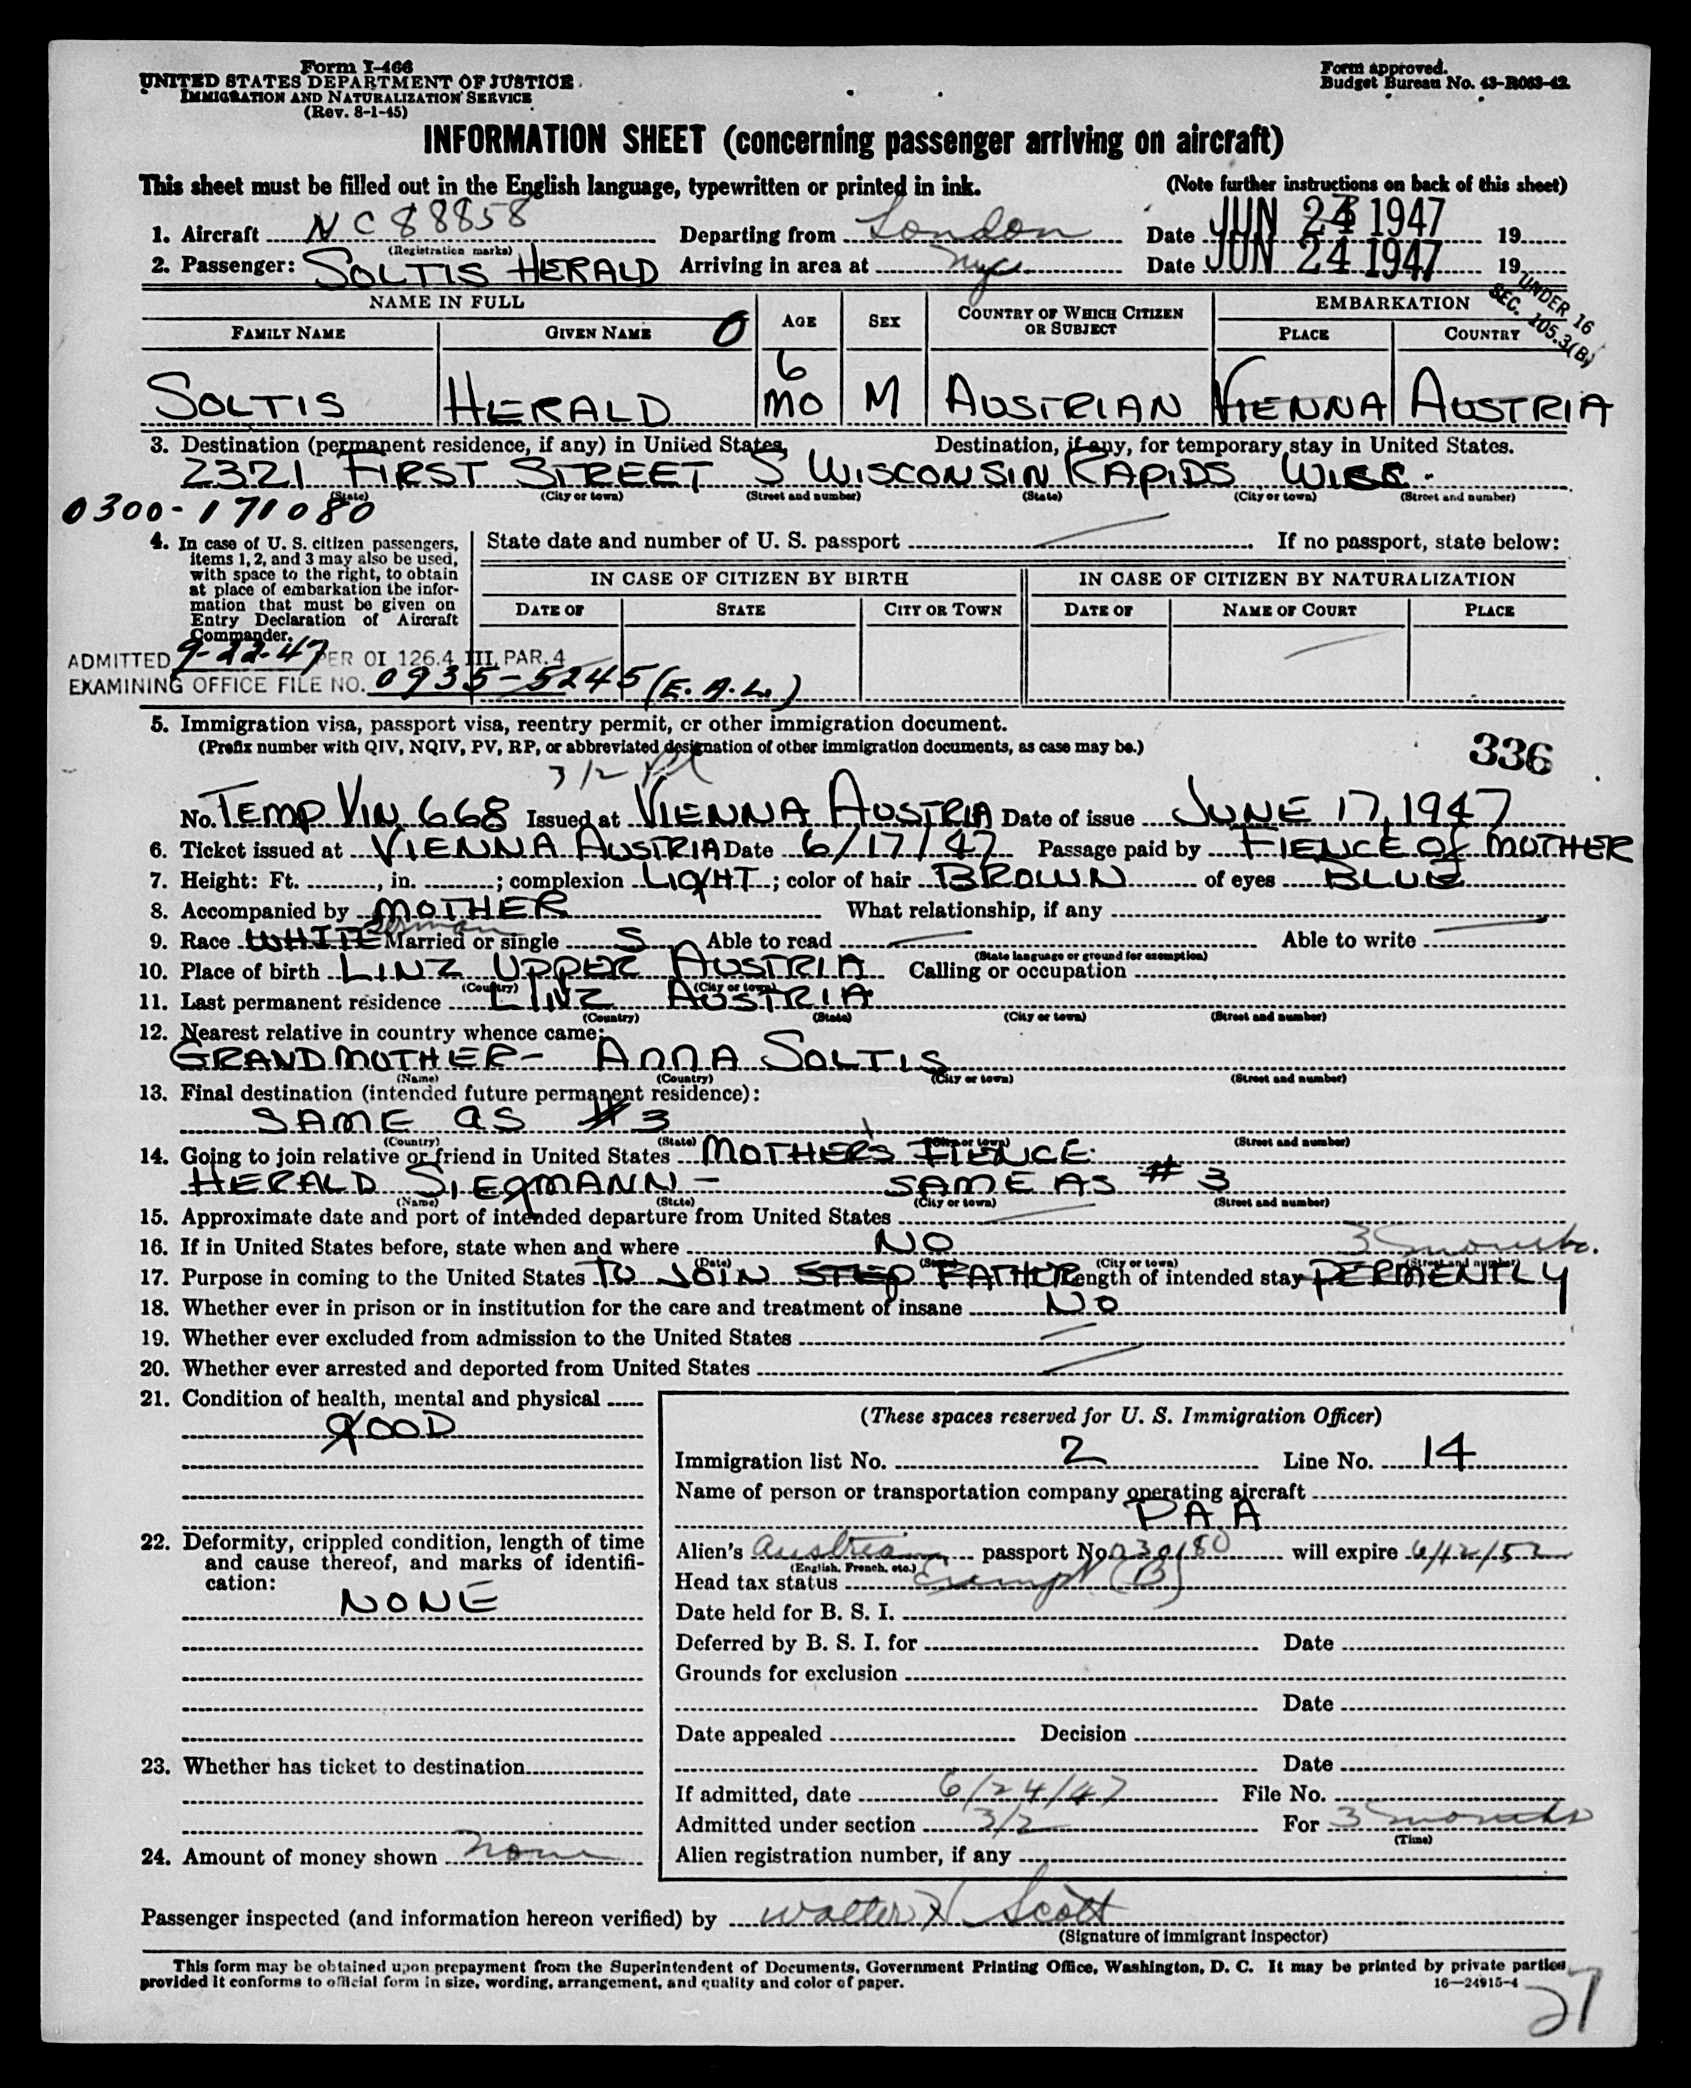 Form I-466
UNITED STATES DEPARTMENT OF JUSTICE
IMMIGRATION AND NATURALIZATION SERVICE
(Rev. 8-1-45)
Form approved.
Budget Bureau No. 43-R063-42.
INFORMATION SHEET (concerning passenger arriving on aircraft)
This sheet must be filled out in the English language, typewritten or printed in ink. (Note further instructions on back of this sheet)
1. Aircraft NC88858 Departing from London Date JUN 1947 19
(Registration marks)
2. Passenger: SOLTIS HERALD Arriving in area at NYC Date JUN 24 1947 19
UNDER 16
SEC. 105.3(B)
NAME IN FULL AGE SEX COUNTRY OF WHICH CITIZEN OR SUBJECT EMBARKATION
FAMILY NAME GIVEN NAME 0 PLACE COUNTRY
SOLTIS HERALD 6 MO M AUSTRIAN VIENNA AUSTRIA
3. Destination (permanent residence, if any) in United States, Destination, if any, for temporary stay in United States.
2321 FIRST STREET S WISCONSIN RAPIDS WISC.
(State) (City or town) (Street and number) (State) (City or town) (Street and number)
0300-171080
4. In case of U. S. citizen passengers, items 1, 2, and 3 may also be used, with space to the right, to obtain at place of embarkation the information that must be given on Entry Declaration of Aircraft Commander.
State date and number of U. S. passport If no passport, state below:
IN CASE OF CITIZEN BY BIRTH IN CASE OF CITIZEN BY NATURALIZATION
DATE OF STATE CITY OR TOWN DATE OF NAME OF COURT PLACE
ADMITTED 9-22-47 PER OI 126.4 III, PAR. 4
EXAMINING OFFICE FILE NO. 0935-5245 (E.A.L.)
5. Immigration visa, passport visa, reentry permit, or other immigration document.
(Prefix number with QIV, NQIV, PV, RP, or abbreviated designation of other immigration documents, as case may be.)
336
3/2
No. TEMP VIN 668 Issued at VIENNA AUSTRIA Date of issue JUNE 17, 1947
6. Ticket issued at VIENNA AUSTRIA Date 6/17/47 Passage paid by FIENCE Of MOTHER
7. Height: Ft. , in. ; complexion LIGHT ; color of hair BROWN of eyes BLUE
8. Accompanied by MOTHER What relationship, if any
9. Race WHITE German Married or single S Able to read Able to write
(State language or ground for exemption)
10. Place of birth LINZ UPPER AUSTRIA Calling or occupation
(Country) (City or town)
11. Last permanent residence LINZ AUSTRIA
(Country) (State) (City or town) (Street and number)
12. Nearest relative in country whence came:
GRANDMOTHER - ANNA SOLTIS
(Name) (Country) (City or town) (Street and number)
13. Final destination (intended future permanent residence):
SAME as # 3
(Country) (State) (City or town) (Street and number)
14. Going to join relative or friend in United States MOTHER'S FIENCE
HERALD SIEGMANN - SAME AS # 3
(Name) (State) (City or town) (Street and number)
15. Approximate date and port of intended departure from United States
16. If in United States before, state when and where NO
(Date) (State) (City or town) (Street and number)
3 months.
17. Purpose in coming to the United States TO JOIN STEP FATHER Length of intended stay PERMENTLY
18. Whether ever in prison or in institution for the care and treatment of insane NO
19. Whether ever excluded from admission to the United States
20. Whether ever arrested and deported from United States
21. Condition of health, mental and physical
GOOD
22. Deformity, crippled condition, length of time and cause thereof, and marks of identification:
NONE
23. Whether has ticket to destination
24. Amount of money shown none
(These spaces reserved for U. S. Immigration Officer)
Immigration list No. 2 Line No. 14
Name of person or transportation company operating aircraft
PAA
Alien's Austrian passport No. 030180 will expire 6/12/52
(English, French, etc.)
Head tax status Exempt (B)
Date held for B. S. I.
Deferred by B. S. I. for Date
Grounds for exclusion
Date
Date appealed Decision
Date
If admitted, date 6/24/47 File No.
Admitted under section 3/2 For 3 months
(Time)
Alien registration number, if any
Passenger inspected (and information hereon verified) by Walter H Scott
(Signature of immigrant inspector)
This form may be obtained upon prepayment from the Superintendent of Documents, Government Printing Office, Washington, D. C. It may be printed by private parties
provided it conforms to official form in size, wording, arrangement, and quality and color of paper. 16—24915-4
27